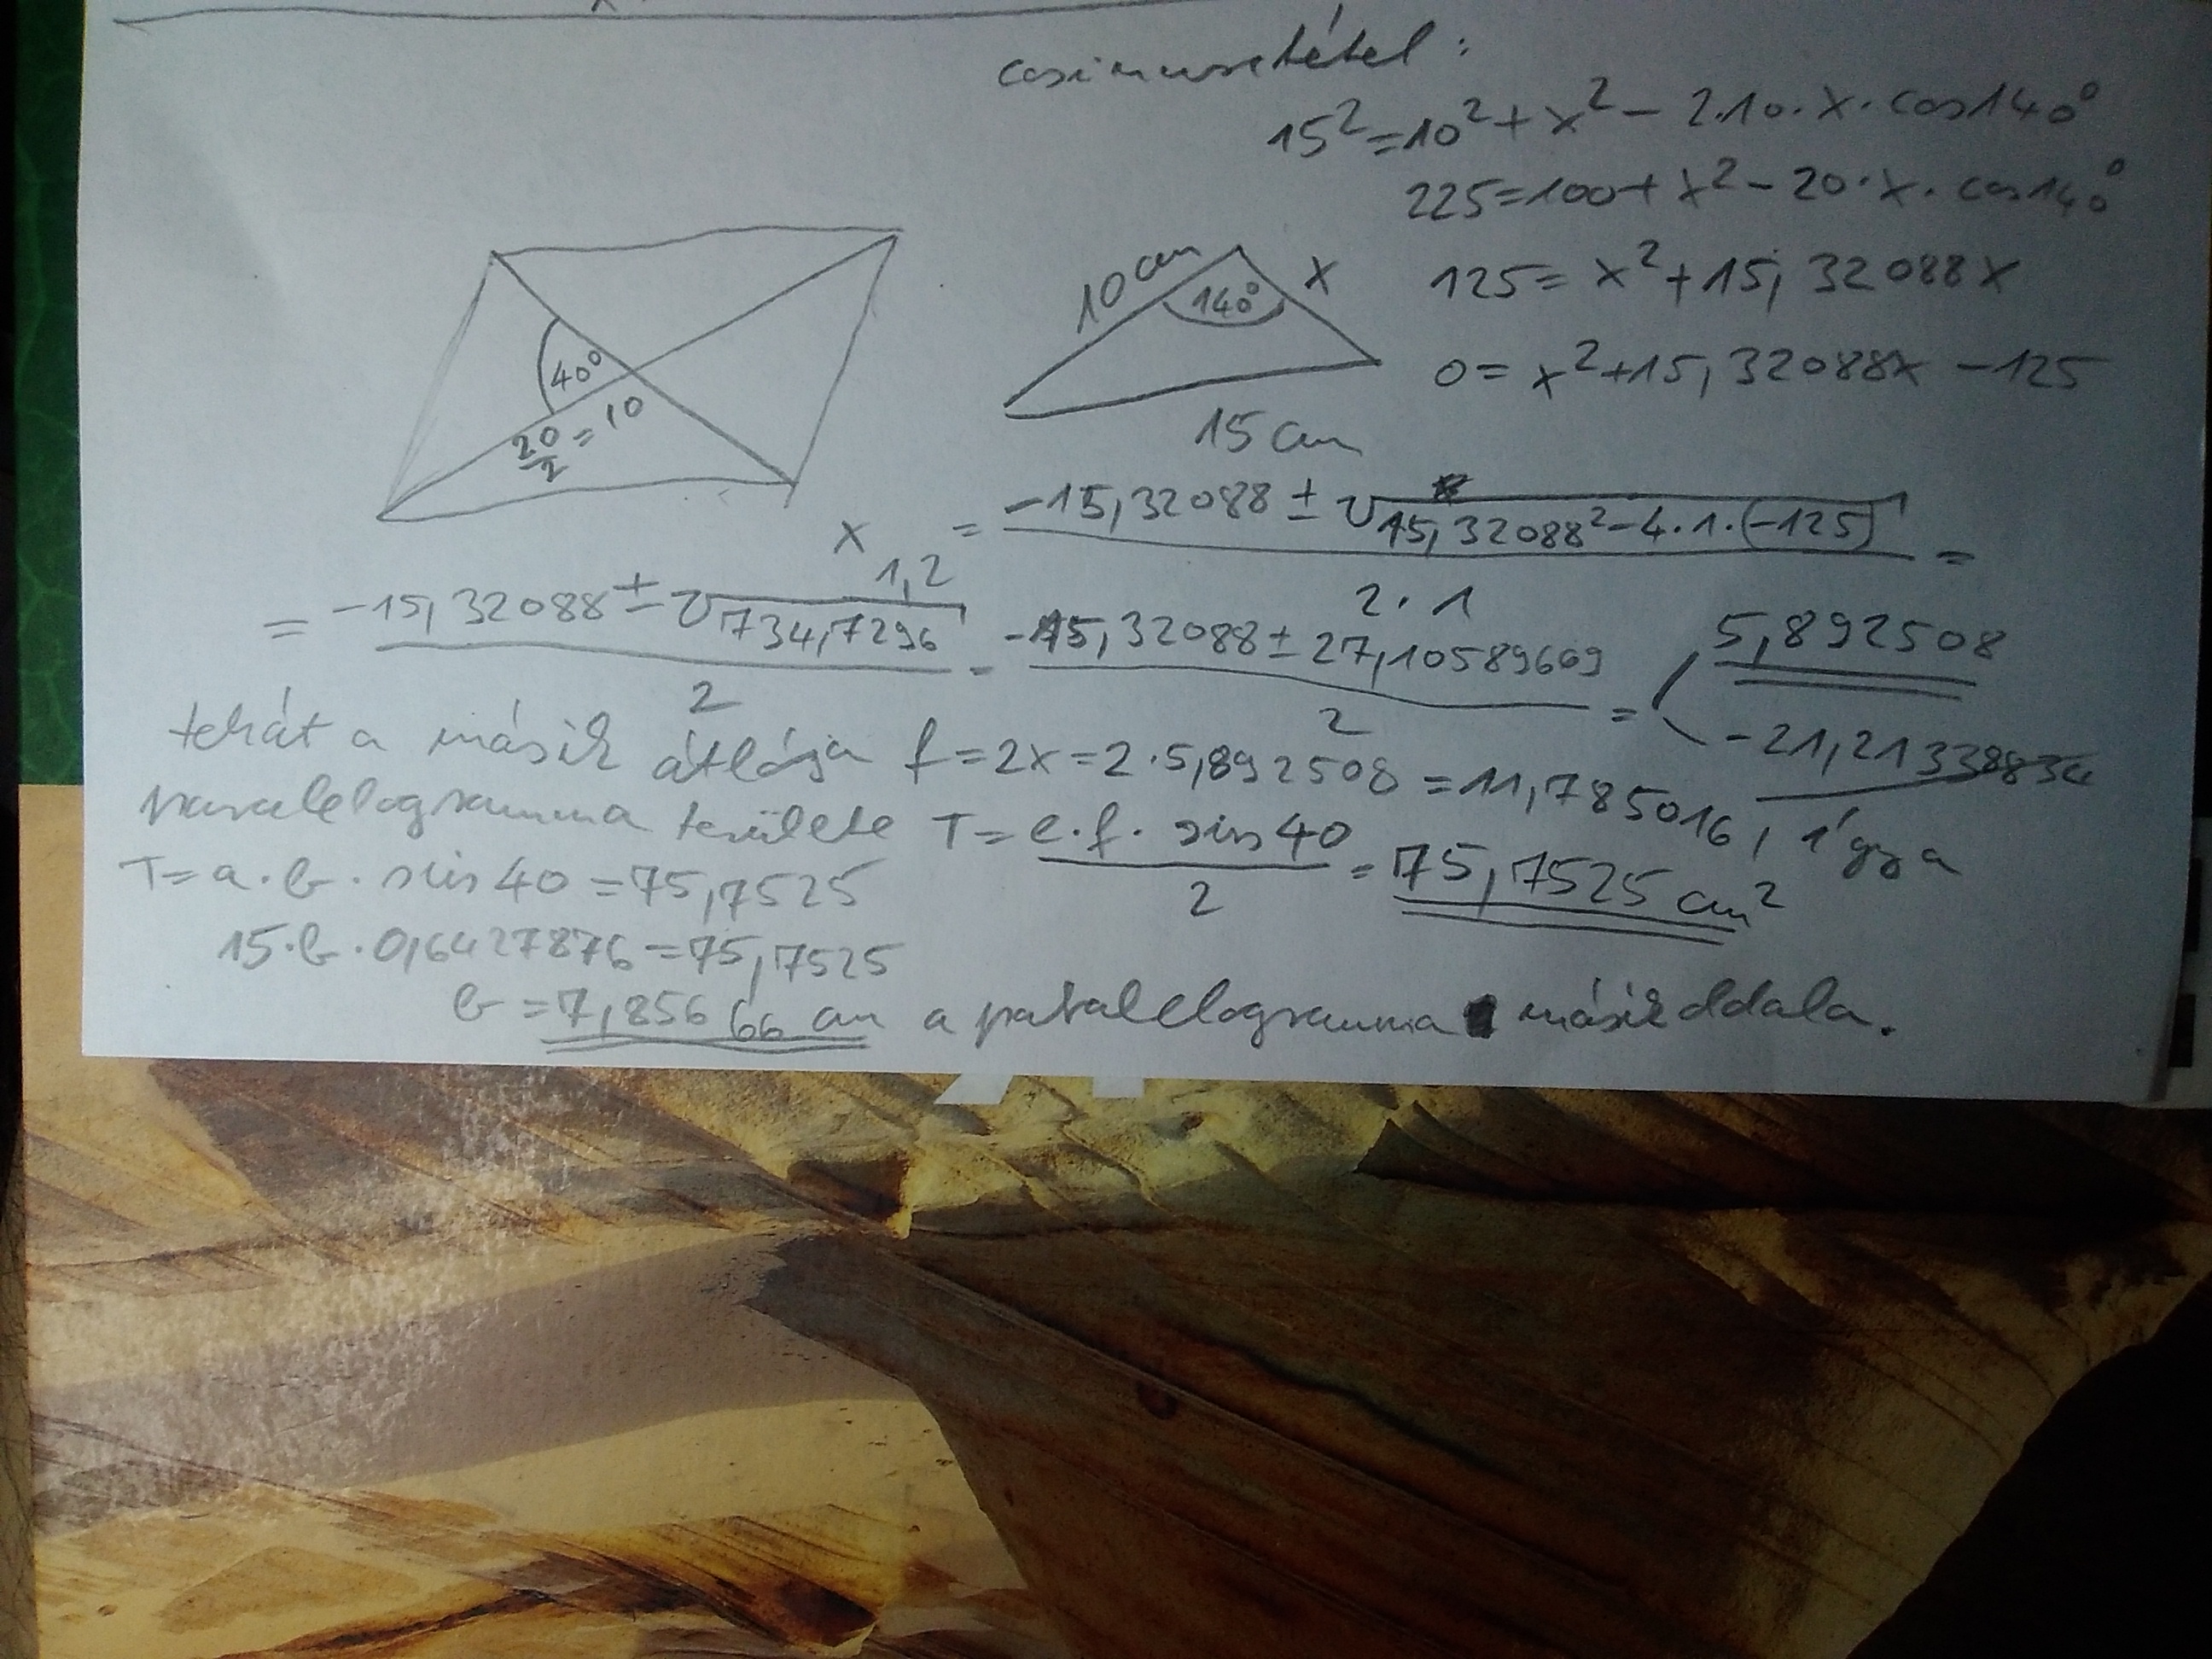 cosinusetétel:
15² = 10² + x² - 2·10·x·cos140°
225 = 100 + x² - 20·x·cos140°
125 = x² + 15,32088x
0 = x² + 15,32088x - 125
40°
20/2 = 10
10 cm
140°
x
15 cm
x₁,₂ = (-15,32088 ± √(15,32088² - 4·1·(-125)))/(2·1) =
= (-15,32088 ± √734,7296)/2 = (-15,32088 ± 27,10589669)/2 = 5,892508
-21,2133883
tehát a másik átlója f = 2x = 2·5,892508 = 11,785016, így a
paralelogramma területe T = (e·f·sin40)/2 = 75,7525 cm²
T = a·b·sin40 = 75,7525
15·b·0,6427876 = 75,7525
b = 7,85666 cm a paralelogramma másik oldala.